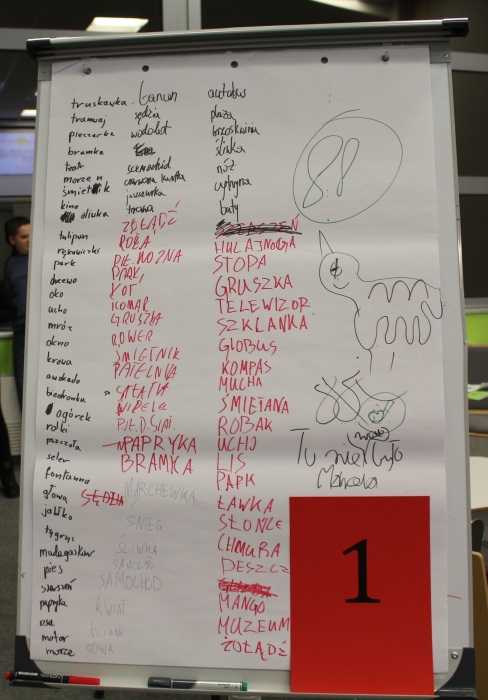 truskawka
tramwaj
pieczarka
bramka
teatr
morze
śmietnik
kino
oliwka
tulipan
rękawiczki
park
drzewo
oko
ucho
mróz
okno
krowa
awokado
biedronka
ogórek
rolki
pszczoła
seler
fontanna
głowa
jabłko
tygrys
madagaskar
pies
szerszeń
papryka
osa
motor
morze
banan
sędzia
wodolot
samochód
czerwona kartka
trawa
ŻOŁĄDŹ
RÓŻA
PIŁ NOŻNA
PARK
KOT
KOMAR
GRUSZKA
ROWER
ŚMIETNIK
PATELNIA
SAŁATA
WIDELE
PAPRYKA
BRAMKA
SĘDZIA
MARCHEWKA
ŚNIEG
ŚLIWKA
SAMOCHÓD
KWIAT
ŚCIANA
SOWA
autobus
plaża
brzoskwinia
śliwka
nóż
cytryna
buty
HULAJNOGA
STOPA
GRUSZKA
TELEWIZOR
SZKLANKA
GLOBUS
KOMPAS
MUCHA
ŚMIETANA
ROBAK
UCHO
LIS
PARK
ŁAWKA
SŁOŃCE
CHMURA
DESZCZ
MANGO
MUZEUM
ŻOŁĄDŹ
88
85
Tu nie było
1